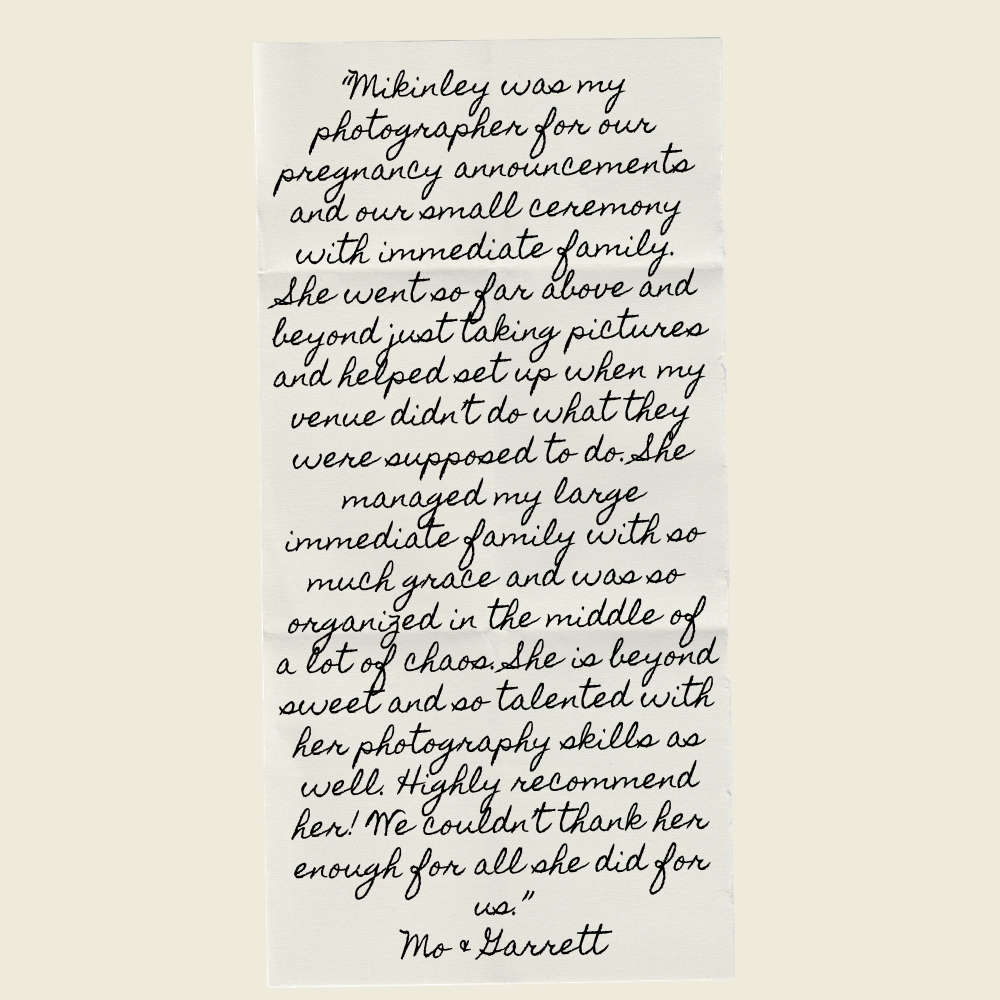 "Mikinley was my
photographer for our
pregnancy announcements
and our small ceremony
with immediate family.
She went so far above and
beyond just taking pictures
and helped set up when my
venue didn't do what they
were supposed to do. She
managed my large
immediate family with so
much grace and was so
organized in the middle of
a lot of chaos. She is beyond
sweet and so talented with
her photography skills as
well. Highly recommend
her! We couldn't thank her
enough for all she did for
us."
Mo & Garrett